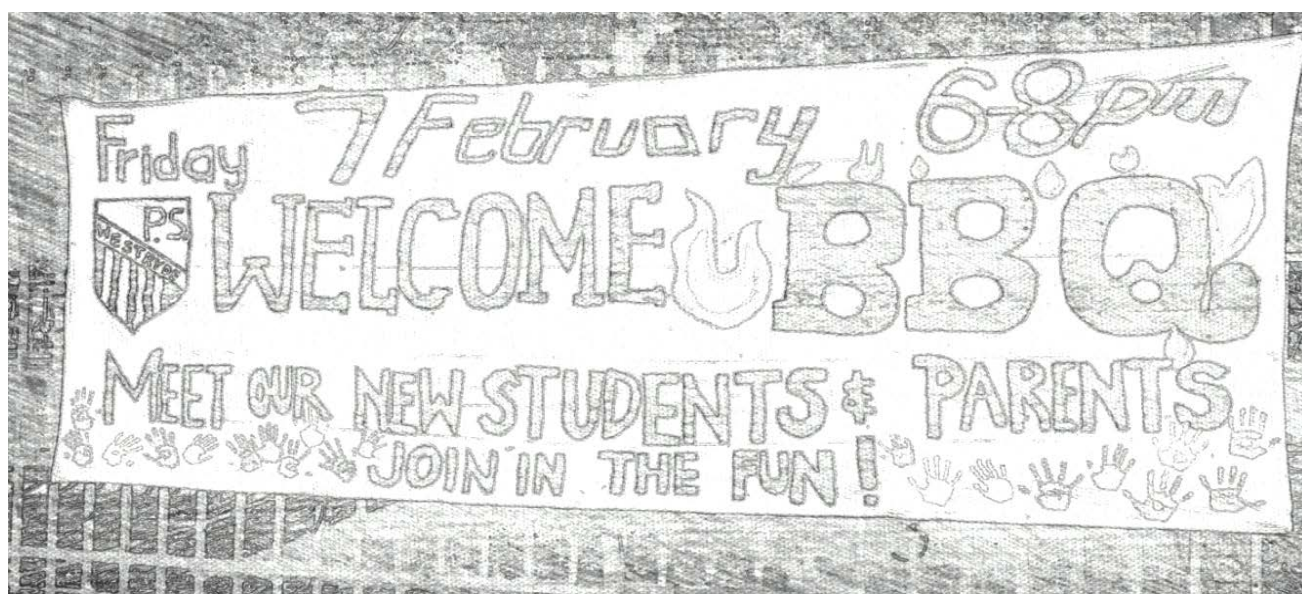 Friday 7 February 6-8pm
P.S.
WEST RYDE
WELCOME BBQ
MEET OUR NEW STUDENTS & PARENTS
JOIN IN THE FUN!